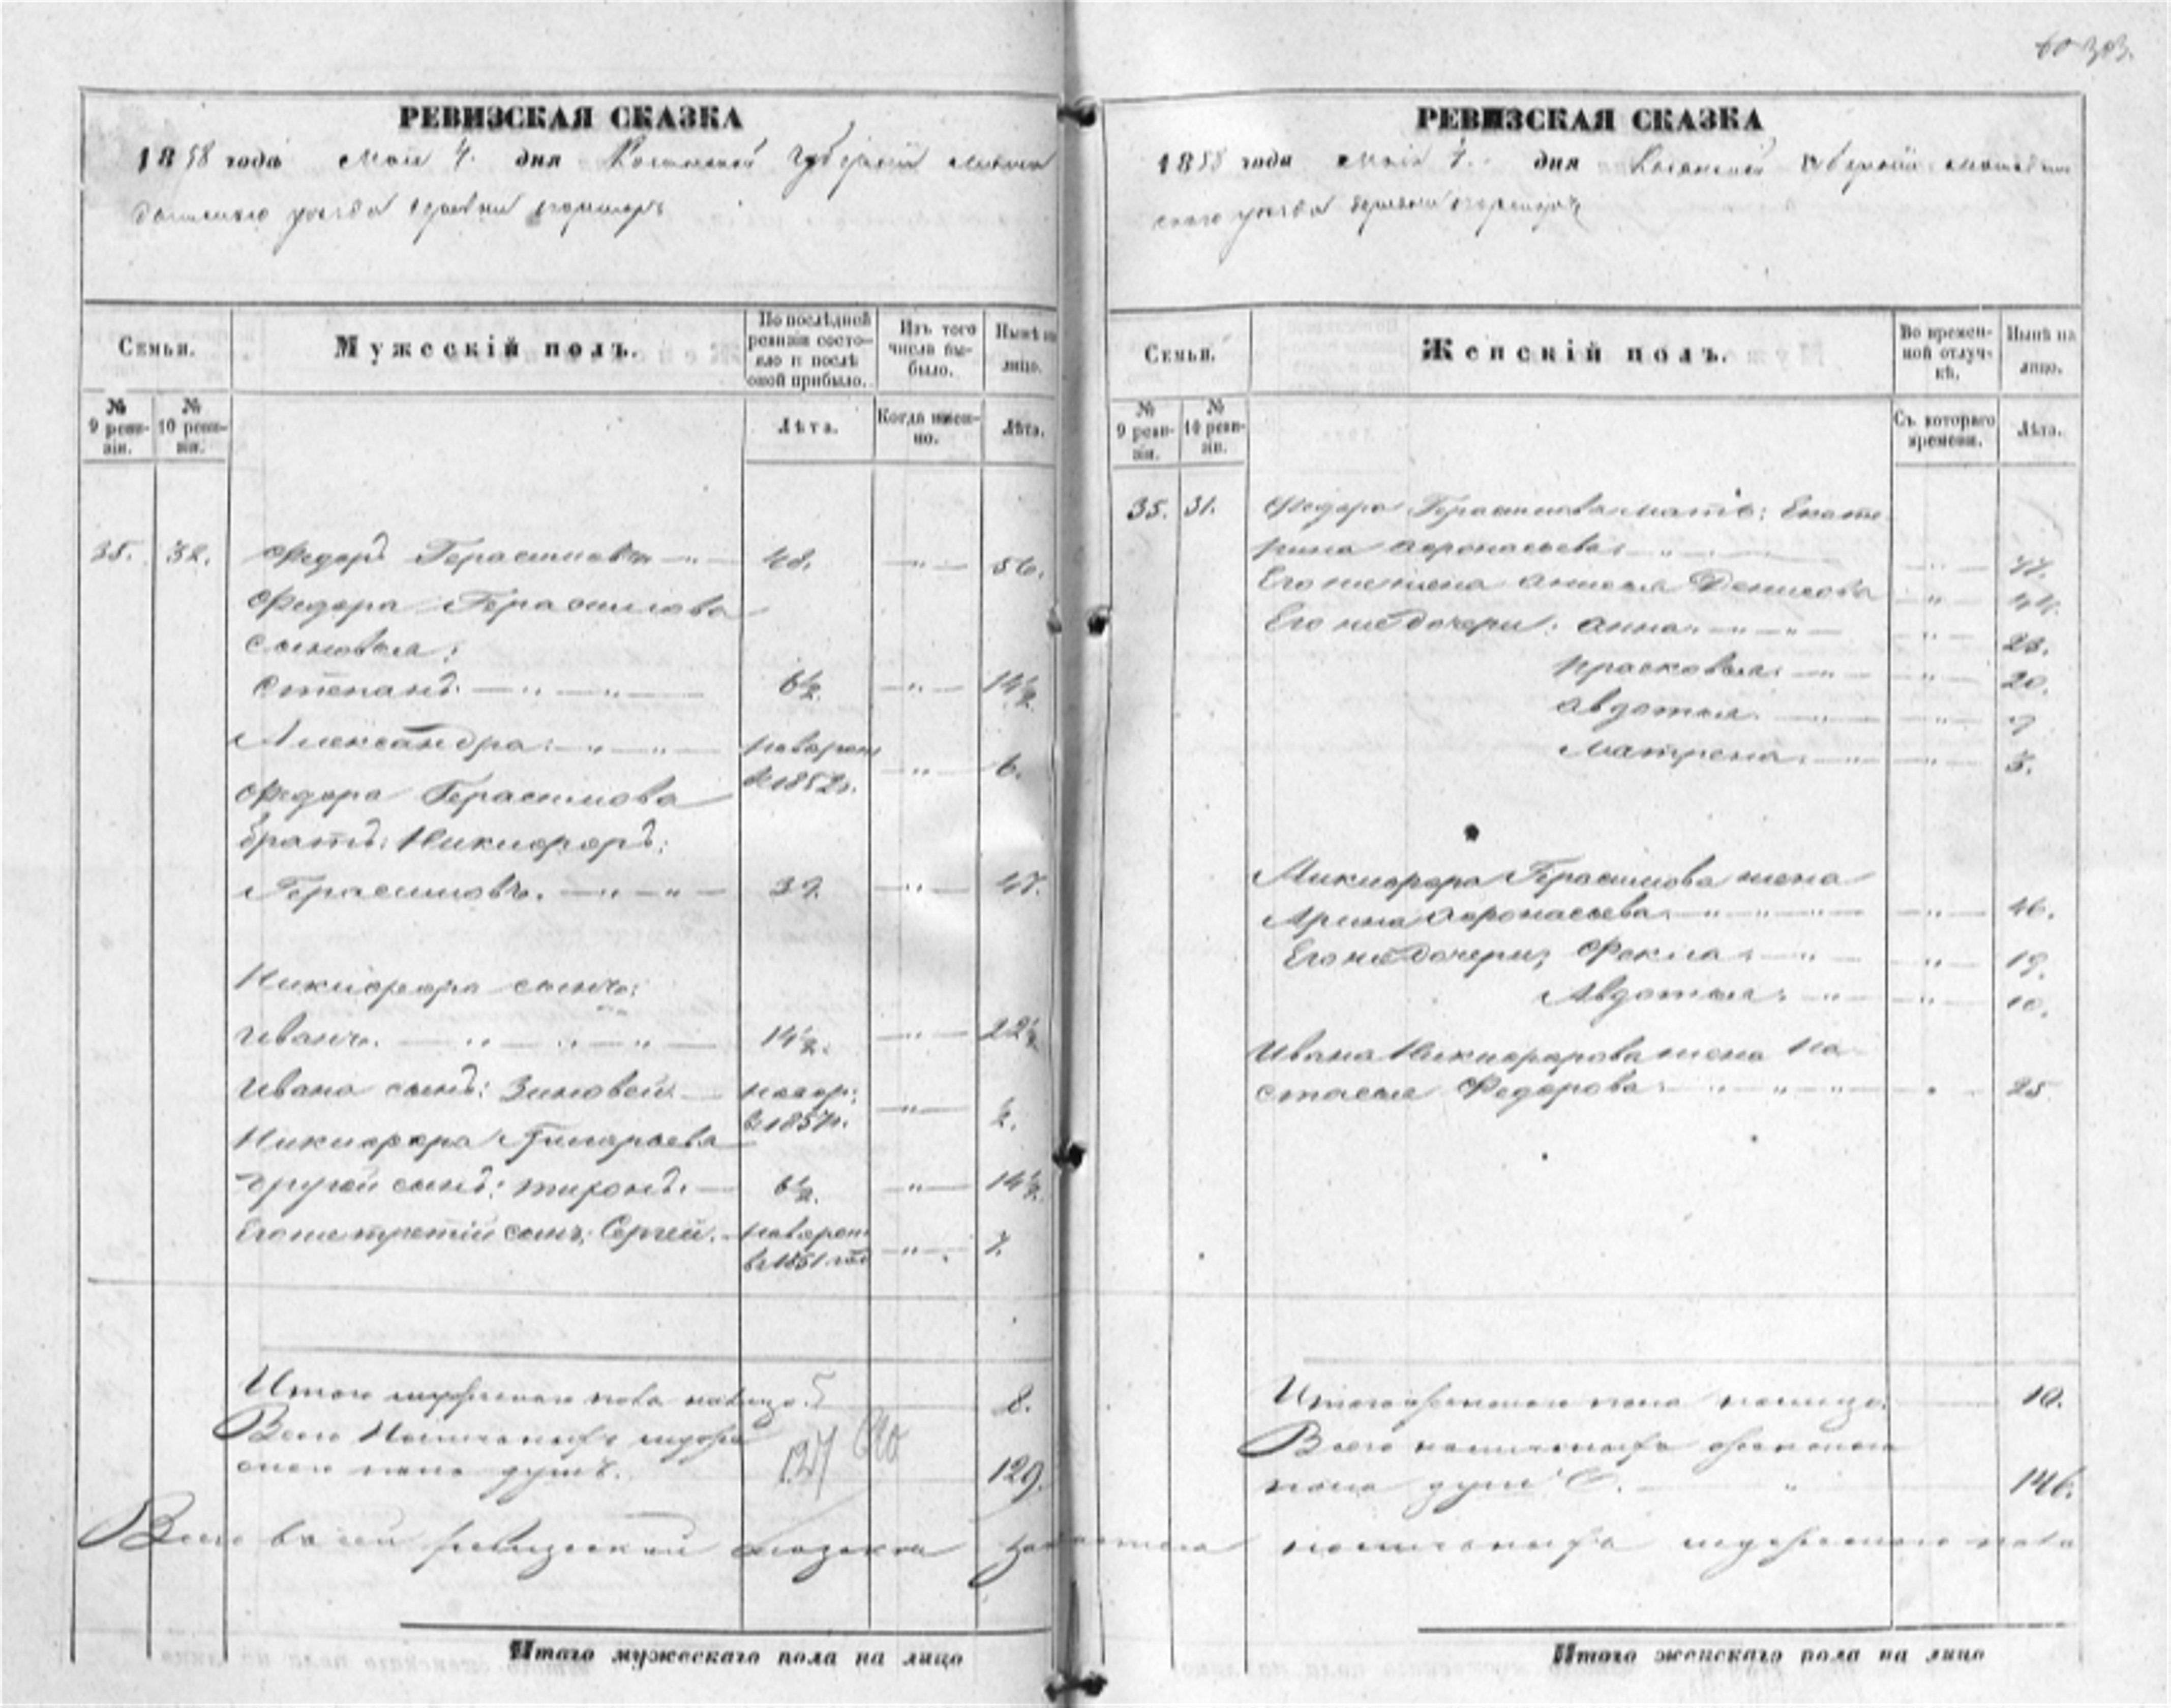 РЕВИЗСКАЯ СКАЗКА
1858 года Мая 4. дня Казанской Губернии
уезда деревни
Семьи.
Мужескій полъ.
По послѣдней ревизіи состояло и послѣ оной прибыло.
Изъ того числа выбыло.
Нынѣ на лицо.
№ 9 ревизіи.
№ 10 ревизіи.
Лѣта.
Когда именно.
Лѣта.
35. 32. Федоръ Герасимовъ 48. 56.
Федора Герасимова
сыновья:
Степанъ. 6½. 14½
Александра: новорож
в 1852г. 6.
Федора Герасимова
братъ: Никифоръ:
Герасимовъ. 39. 47.
Никифора сынъ:
Иванъ. 14½. 22½
Ивана сынъ: Зиновей новор:
в 1857г. ½.
Никифора Григорьева
другой сынъ: 6½. 14½.
Егоже третій сынъ: Сергей. новорож
в 1851 год 7.
Итого мужескаго пола налицо. 5 8.
Всего Наличныхъ мужес
скаго пола душъ. 127 129.
Всего в сей ревизской сказки наличныхъ мужескаго пола
Итого мужескаго пола на лицо
РЕВИЗСКАЯ СКАЗКА
1858 года Мая 4. дня Казанской Губернии
скаго уезда деревни
Семьи.
Женскій полъ.
Во временной отлучкѣ.
Нынѣ на лицо.
№ 9 ревизіи.
№ 10 ревизіи.
Съ котораго времени.
Лѣта.
35. 31. Федора Герасимова мать: Екате
рина Афонасьева 77.
Егоже жена Анисья Денисова 44.
Егоже дочери: Анна 23.
Прасковья 20.
Авдотья 9
Матрена 3.
Никифора Герасимова жена
Арина Афонасьева 46.
Егоже дочери; Фекла 19.
Авдотья 10.
Ивана Никифорова жена На
стасья Федорова 25
Итого женскаго пола налицо. 10.
Всего наличныхъ женскаго
пола душъ. 146.
Итого женскаго пола на лицо